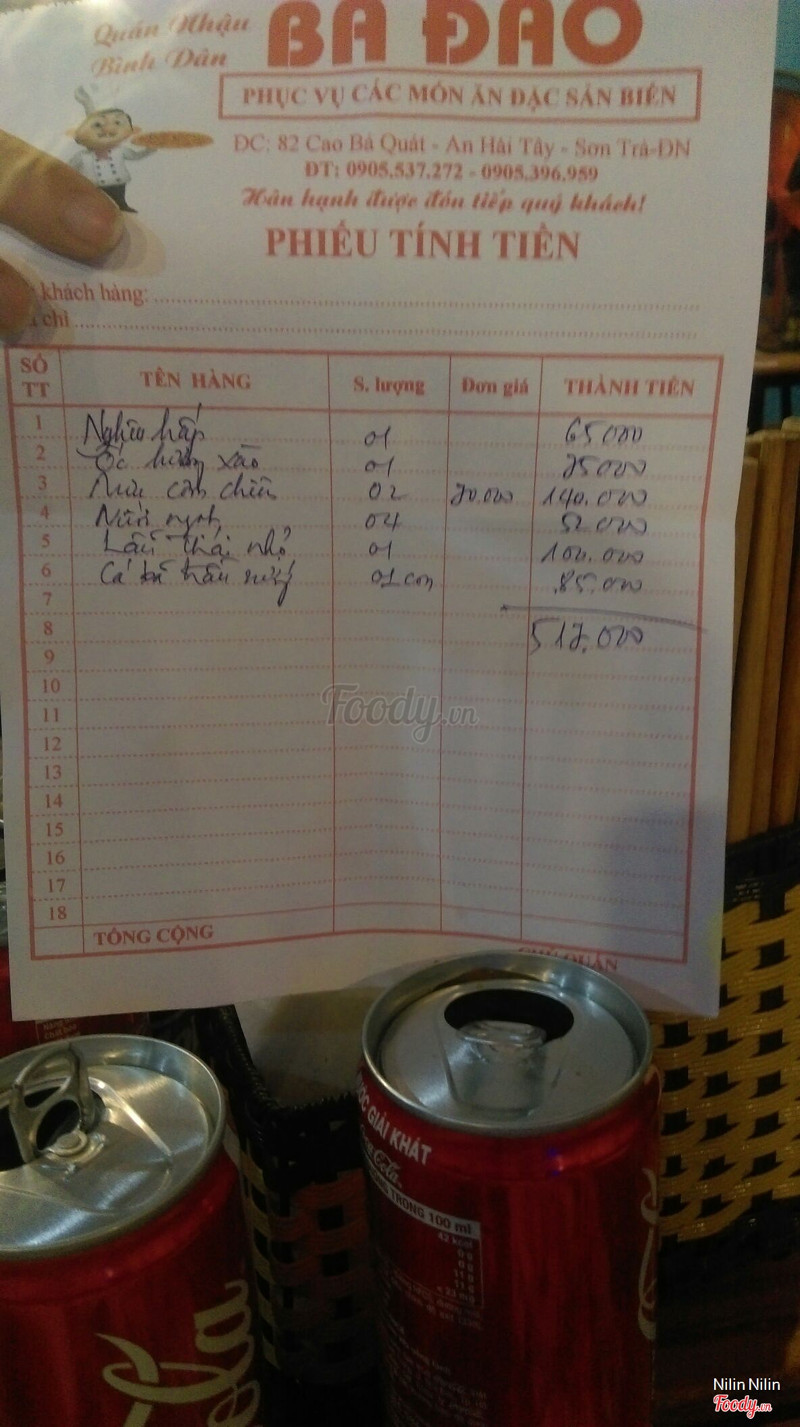 Quán Nhậu
Bình Dân
BA ĐAO
PHỤC VỤ CÁC MÓN ĂN ĐẶC SẢN BIỂN
ĐC: 82 Cao Bá Quát - An Hải Tây - Sơn Trà-ĐN
ĐT: 0905.537.272 - 0905.396.959
Hân hạnh được đón tiếp quý khách!
PHIẾU TÍNH TIỀN
khách hàng:
chỉ
SỐ TT TÊN HÀNG S. lượng Đơn giá THÀNH TIỀN
1 Nghêu hấp 01 65000
2 Ốc hương xào 01 75000
3 Mực cơm chiên 02 70.000 140.000
4 Nước ngọt 04 52000
5 Lẩu thái nhỏ 01 100.000
6 Cá bã trầu nướng 01 con 85.000
7
8 517.000
9
10
11
12
13
14
15
16
17
18
TỔNG CỘNG
CHỦ QUÁN
Foody.vn
GIẢI KHÁT
Coca-Cola
TRONG 100 ml
42 kcal
Nilin Nilin
Foody.vn